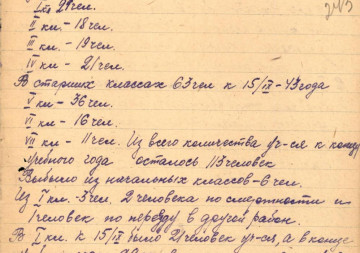 I кл 29 чел.
II кл. - 18 чел.
III кл. - 19 чел.
IV кл - 21 чел.
В старших классах 63 чел к 15/IX - 43 года
V кл - 36 чел.
VI кл - 16 чел.
VII кл - 11 чел. Из всего количества уч-ся к концу
учебного года осталось 113 человек
Выбыло из начальных классов - 6 чел.
Из I кл. - 3 чел. 2 человека по смертности и
1 человек по переезду в другой район.
В I кл. к 15/IX было 21 человек уч-ся, а в конце